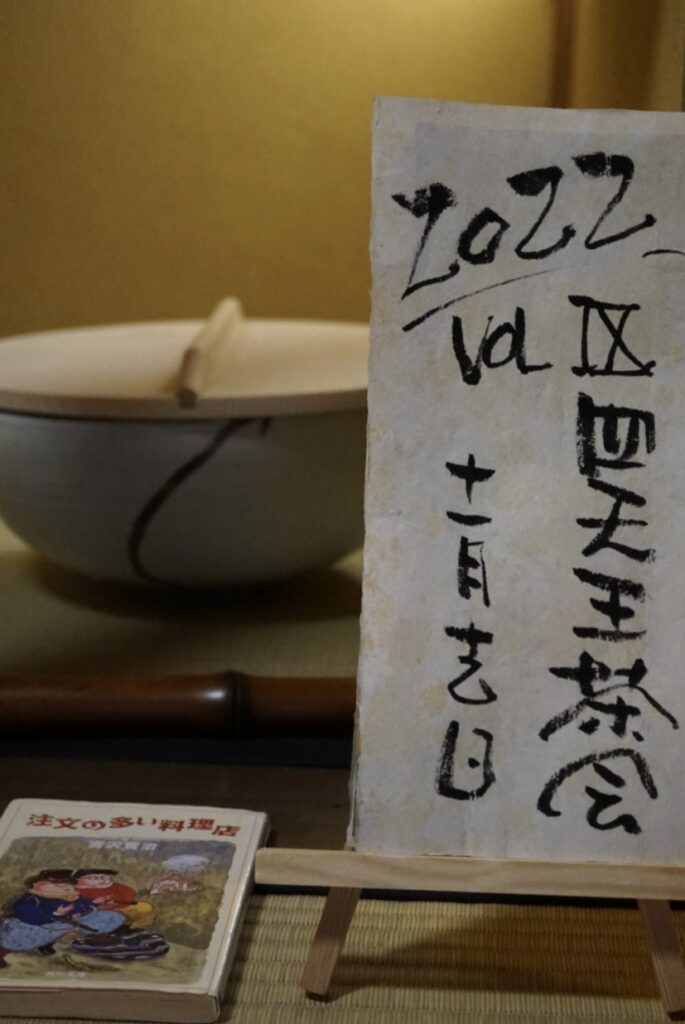 2022
Vol IX
四天王茶会
十一月 日
注文の多い料理店
宮沢賢治
角川文庫